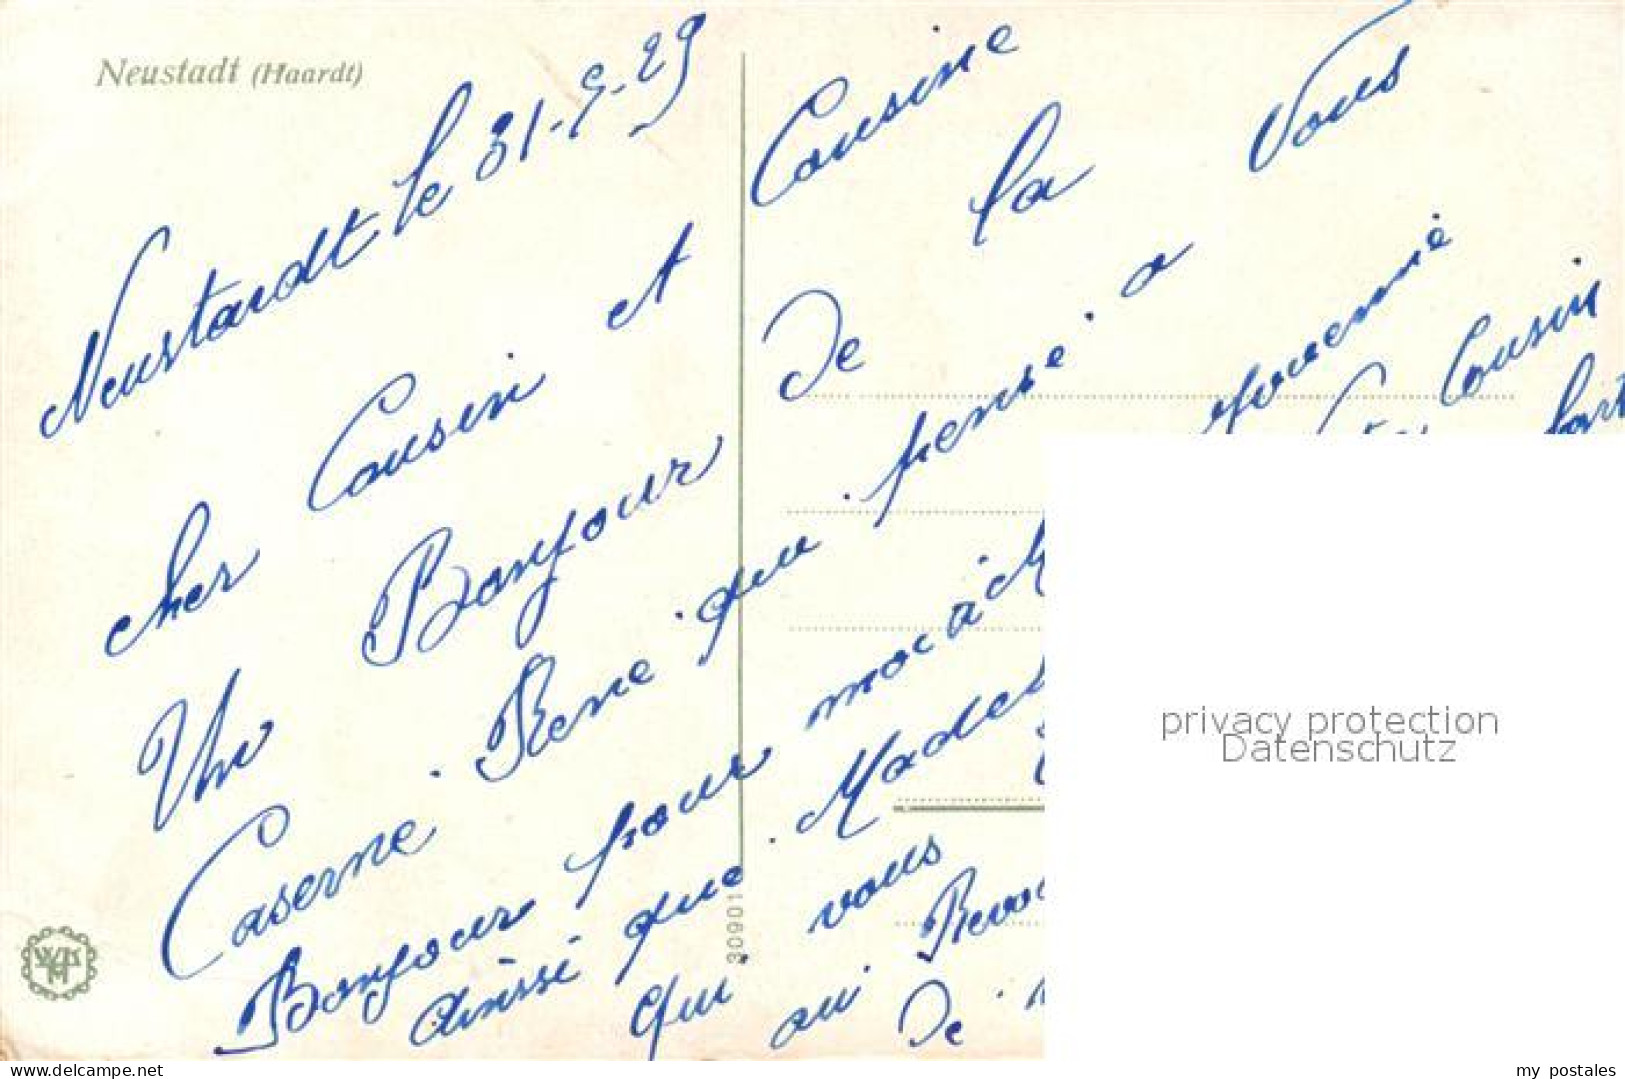 Neustadt (Haardt)
Neustardt le 31-5-29
cher Cousin et Cousine
Un Bonjour De la
Caserne Rene qui pense a Vous
Bonjour pour moi à
ainsi que Madel
qui vous
au Revoi
De
Cousin
30901
WPM
privacy protection
Datenschutz
my postales